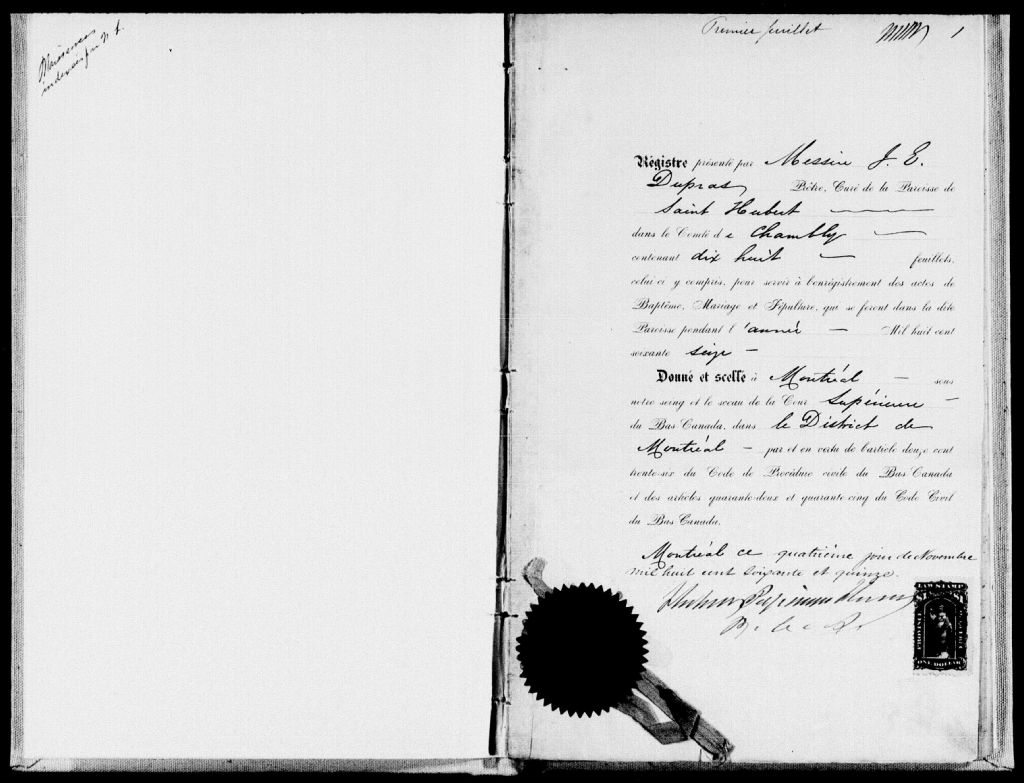 Premier feuillet 1
Régistre présenté par Messire J. E.
Dupras, Prêtre, Curé de la Paroisse de
Saint Hubert
dans le Comté de Chambly
contenant dix huit feuillets,
celui-ci y compris, pour servir à l'enrégistrement des actes de
Baptême, Mariage et Sépulture, qui se feront dans la dite
Paroisse pendant l'année Mil huit cent
soixante seize
Donné et scellé à Montréal sous
notre seing et le sceau de la Cour Supérieure
du Bas Canada, dans le District de
Montréal par et en vertu de l'article douze cent
trente-six du Code de Procédure civile du Bas Canada
et des articles quarante-deux et quarante-cinq du Code Civil
du Bas Canada.
Montréal ce quatrième jour de Novembre
mil huit cent soixante et quinze.
LAW STAMP
PROVINCE
ONE DOLLAR